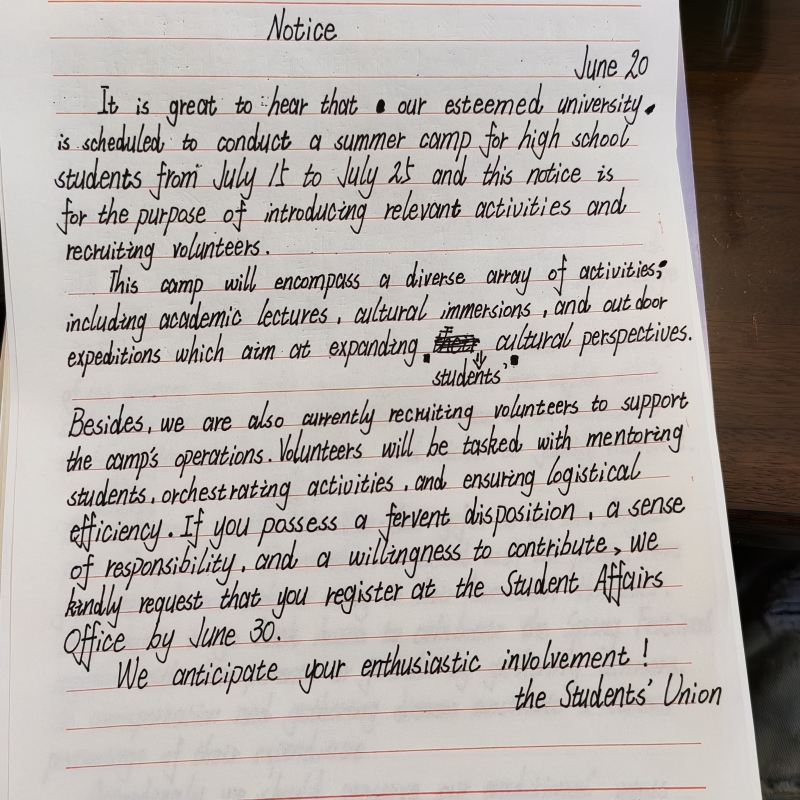 Notice
June 20
It is great to hear that our esteemed university
is scheduled to conduct a summer camp for high school
students from July 15 to July 25 and this notice is
for the purpose of introducing relevant activities and
recruiting volunteers.
This camp will encompass a diverse array of activities,
including academic lectures, cultural immersions, and outdoor
expeditions which aim at expanding cultural perspectives.
students'
Besides, we are also currently recruiting volunteers to support
the camp's operations. Volunteers will be tasked with mentoring
students, orchestrating activities, and ensuring logistical
efficiency. If you possess a fervent disposition, a sense
of responsibility, and a willingness to contribute, we
kindly request that you register at the Student Affairs
Office by June 30.
We anticipate your enthusiastic involvement!
the Students' Union